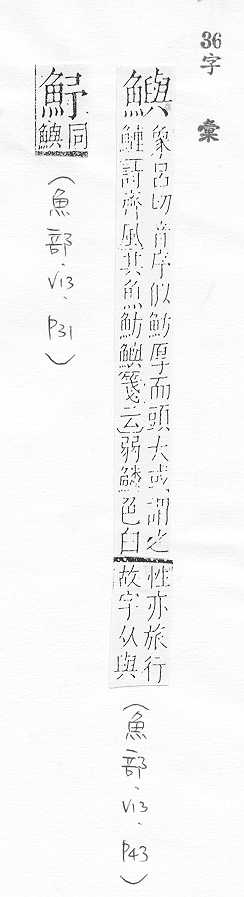 36
字彙
鱮
象呂切音序似魴厚而頭大或謂之
鰱詩齊風其魚魴鱮箋云弱鱗色白
性亦旅行
故字从與
(魚部.V13.P43)
魣
同
鱮
(魚部.V13.P31)